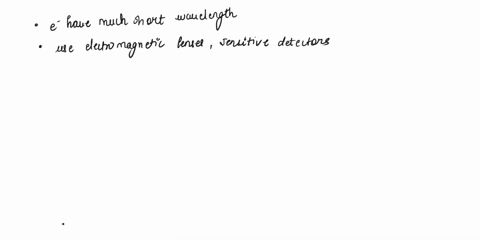 • e⁻ have much short wavelength
• use electromagnetic lenses, sensitive detectors